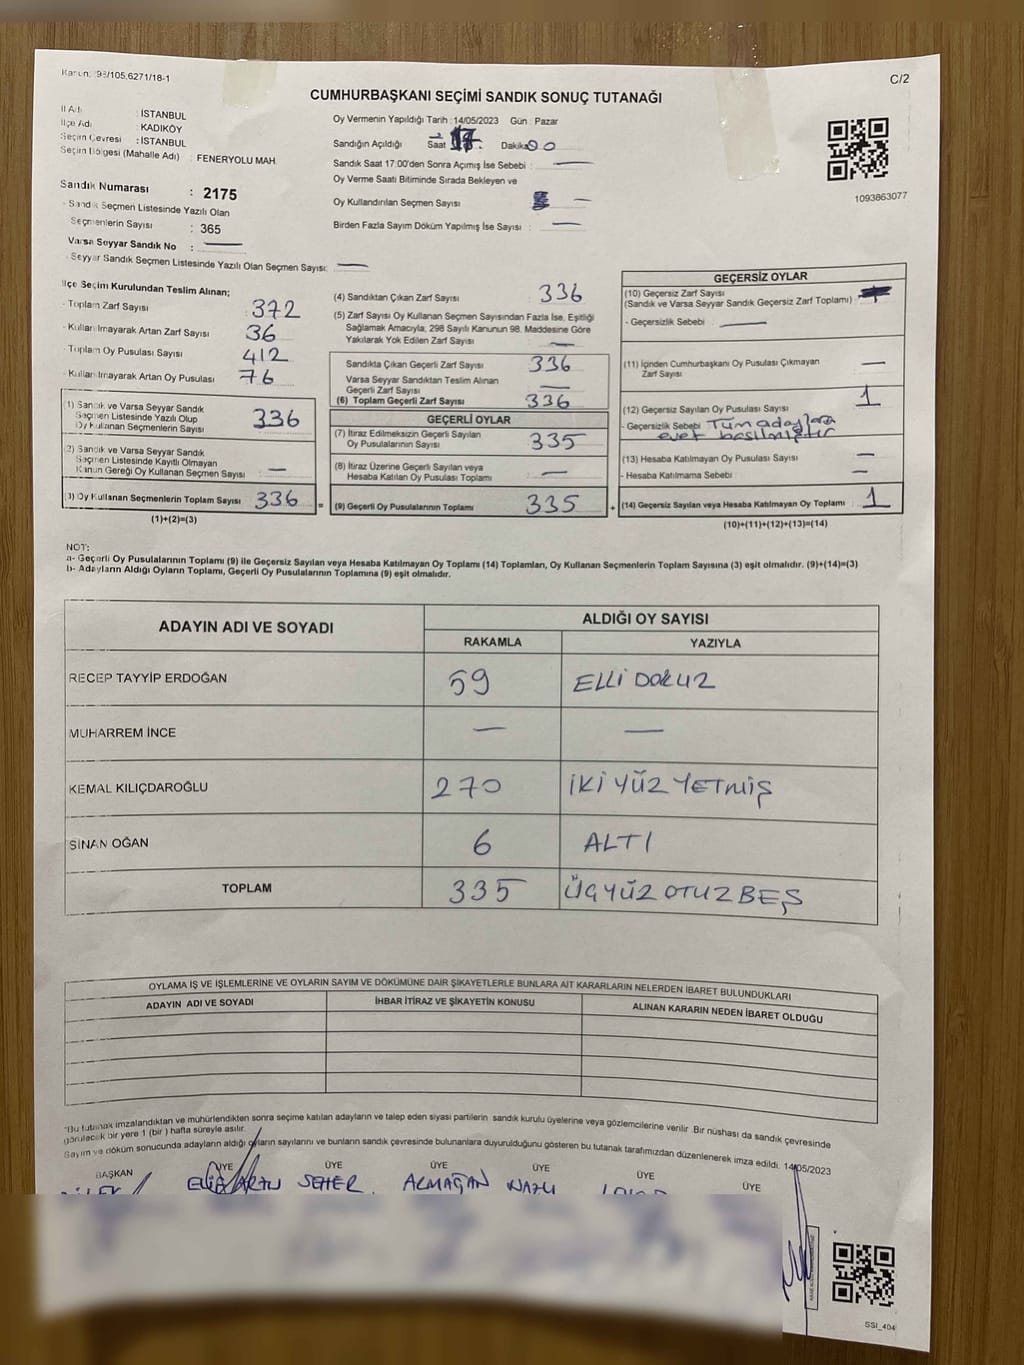 Kanun: 98/105,6271/18-1
C/2
CUMHURBAŞKANI SEÇİMİ SANDIK SONUÇ TUTANAĞI
İl Adı : İSTANBUL
İlçe Adı : KADIKÖY
Seçim Çevresi : İSTANBUL
Seçim Bölgesi (Mahalle Adı) : FENERYOLU MAH.
Sandık Numarası : 2175
- Sandık Seçmen Listesinde Yazılı Olan
Seçmenlerin Sayısı : 365
Varsa Seyyar Sandık No : —
- Seyyar Sandık Seçmen Listesinde Yazılı Olan Seçmen Sayısı: —
Oy Vermenin Yapıldığı Tarih : 14/05/2023 Gün : Pazar
Sandığın Açıldığı Saat 17: Dakika 00
Sandık Saat 17:00'den Sonra Açımış İse Sebebi : —
Oy Verme Saati Bitiminde Sırada Bekleyen ve
Oy Kullandırılan Seçmen Sayısı —
Birden Fazla Sayım Döküm Yapılmış İse Sayısı : —
1093863077
İlçe Seçim Kurulundan Teslim Alınan;
- Toplam Zarf Sayısı : 372
- Kullanılmayarak Artan Zarf Sayısı 36
- Toplam Oy Pusulası Sayısı 412
- Kullanılmayarak Artan Oy Pusulası 76
(1) Sandık ve Varsa Seyyar Sandık
Seçmen Listesinde Yazılı Olup
Oy Kullanan Seçmenlerin Sayısı 336
(2) Sandık ve Varsa Seyyar Sandık
Seçmen Listesinde Kayıtlı Olmayan
Kanun Gereği Oy Kullanan Seçmen Sayısı : —
(3) Oy Kullanan Seçmenlerin Toplam Sayısı 336 =
(1)+(2)=(3)
(4) Sandıktan Çıkan Zarf Sayısı 336
(5) Zarf Sayısı Oy Kullanan Seçmen Sayısından Fazla İse, Eşitliği
Sağlamak Amacıyla, 298 Sayılı Kanunun 98. Maddesine Göre
Yakılarak Yok Edilen Zarf Sayısı —
Sandıkta Çıkan Geçerli Zarf Sayısı 336
Varsa Seyyar Sandıktan Teslim Alınan
Geçerli Zarf Sayısı —
(6) Toplam Geçerli Zarf Sayısı 336
GEÇERLİ OYLAR
(7) İtiraz Edilmeksizin Geçerli Sayılan
Oy Pusulalarının Sayısı 335
(8) İtiraz Üzerine Geçerli Sayılan veya
Hesaba Katılan Oy Pusulası Toplamı —
(9) Geçerli Oy Pusulalarının Toplamı 335 +
GEÇERSİZ OYLAR
(10) Geçersiz Zarf Sayısı
(Sandık ve Varsa Seyyar Sandık Geçersiz Zarf Toplamı) :
- Geçersizlik Sebebi —
(11) İçinden Cumhurbaşkanı Oy Pusulası Çıkmayan
Zarf Sayısı —
(12) Geçersiz Sayılan Oy Pusulası Sayısı 1
- Geçersizlik Sebebi Tüm adaylara
evet basılmıştır
(13) Hesaba Katılmayan Oy Pusulası Sayısı —
- Hesaba Katılmama Sebebi : —
(14) Geçersiz Sayılan veya Hesaba Katılmayan Oy Toplamı 1
(10)+(11)+(12)+(13)=(14)
NOT:
a- Geçerli Oy Pusulalarının Toplamı (9) ile Geçersiz Sayılan veya Hesaba Katılmayan Oy Toplamı (14) Toplamları, Oy Kullanan Seçmenlerin Toplam Sayısına (3) eşit olmalıdır. (9)+(14)=(3)
b- Adayların Aldığı Oyların Toplamı, Geçerli Oy Pusulalarının Toplamına (9) eşit olmalıdır.
ADAYIN ADI VE SOYADI
ALDIĞI OY SAYISI
RAKAMLA YAZIYLA
RECEP TAYYİP ERDOĞAN 59 ELLİ DOKUZ
MUHARREM İNCE — —
KEMAL KILIÇDAROĞLU 270 İKİ YÜZ YETMİŞ
SİNAN OĞAN 6 ALTI
TOPLAM 335 ÜÇYÜZ OTUZ BEŞ
OYLAMA İŞ VE İŞLEMLERİNE VE OYLARIN SAYIM VE DÖKÜMÜNE DAİR ŞİKAYETLERLE BUNLARA AİT KARARLARIN NELERDEN İBARET BULUNDUKLARI
ADAYIN ADI VE SOYADI İHBAR İTİRAZ VE ŞİKAYETİN KONUSU ALINAN KARARIN NEDEN İBARET OLDUĞU
"Bu tutanak imzalandıktan ve mühürlendikten sonra seçime katılan adayların ve talep eden siyasi partilerin sandık kurulu üyelerine veya gözlemcilerine verilir. Bir nüshası da sandık çevresinde
görülecek bir yere 1 (bir) hafta süreyle asılır.
Sayım ve döküm sonucunda adayların aldığı oyların sayılarını ve bunların sandık çevresinde bulunanlara duyurulduğunu gösteren bu tutanak tarafımızdan düzenlenerek imza edildi. 14/05/2023
BAŞKAN ÜYE ÜYE ÜYE ÜYE ÜYE ÜYE
SEHER ARMAĞAN NAZLI
SSI_404